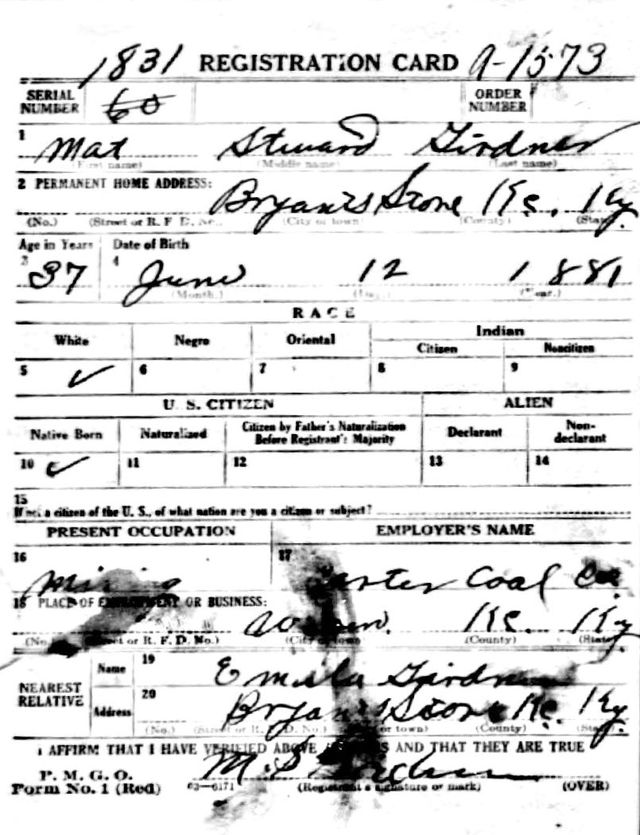 1831 REGISTRATION CARD A-1573
SERIAL NUMBER 60 ORDER NUMBER
1 Mat Steward Girdner
(First name) (Middle name) (Last name)
2 PERMANENT HOME ADDRESS:
Bryants Store Kx. Ky.
(No.) (Street or R. F. D. No.) (City or town) (County) (State)
Age in Years Date of Birth
3 37 4 June 12 1881
(Month.) (Day.) (Year.)
RACE
White Negro Oriental Indian
Citizen Noncitizen
5 ✓ 6 7 8 9
U. S. CITIZEN ALIEN
Native Born Naturalized Citizen by Father's Naturalization Before Registrant's Majority Declarant Non-declarant
10 ✓ 11 12 13 14
15
If not a citizen of the U. S., of what nation are you a citizen or subject?
PRESENT OCCUPATION EMPLOYER'S NAME
16 Mining 17 Carter Coal Co.
18 PLACE OF EMPLOYMENT OR BUSINESS:
Kx. Ky.
(No.) (Street or R. F. D. No.) (City or town) (County) (State)
NEAREST RELATIVE Name 19 Girdner
Address 20 Bryants Store Kx. Ky.
(No.) (Street or R. F. D. No.) (City or town) (County) (State)
I AFFIRM THAT I HAVE VERIFIED ABOVE ANSWERS AND THAT THEY ARE TRUE
P. M. G. O.
Form No. 1 (Red) 03-6171 M. S. Girdner
(Registrant's signature or mark) (OVER)